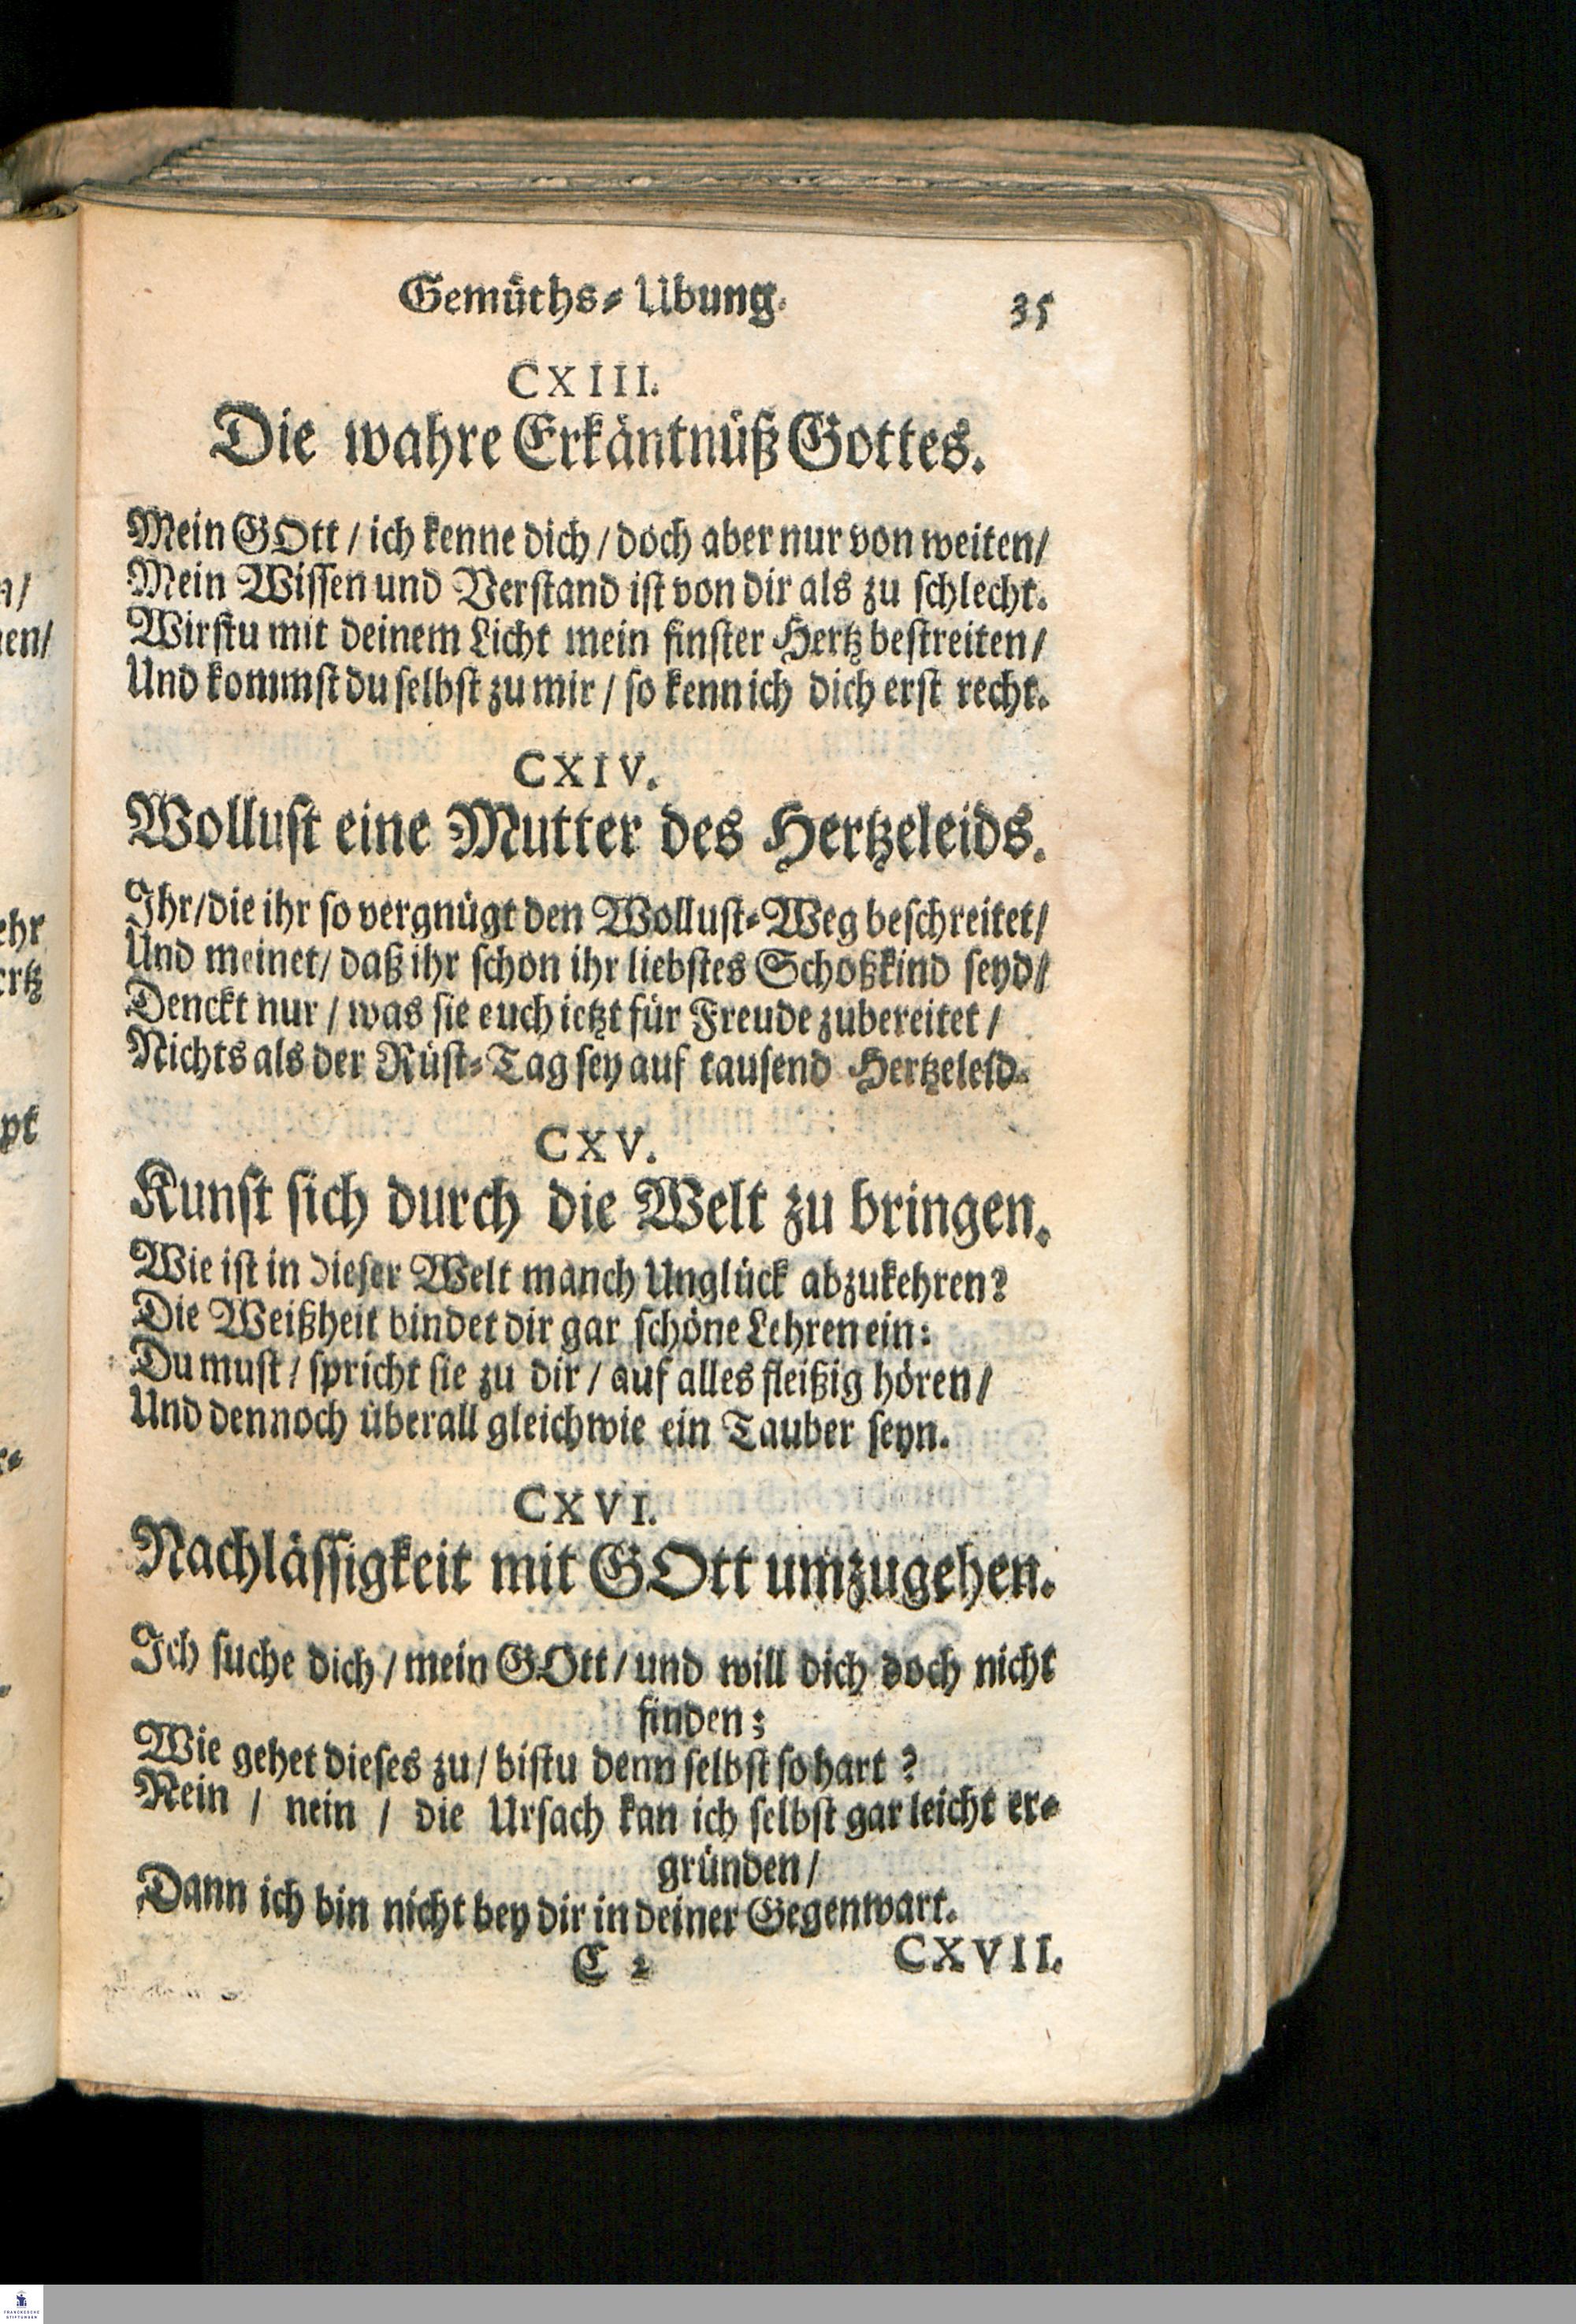 Gemüths-Ubung. 35
CXIII.
Die wahre Erkäntnüß Gottes.
Mein GOtt / ich kenne dich / doch aber nur von weiten /
Mein Wissen und Verstand ist von dir als zu schlecht.
Wirstu mit deinem Licht mein finster Hertz bestreiten /
Und kommst du selbst zu mir / so kenn ich dich erst recht.
CXIV.
Wollust eine Mutter des Hertzeleids.
Ihr / die ihr so vergnügt den Wollust-Weg beschreitet /
Und meinet / daß ihr schon ihr liebstes Schoßkind seyd /
Denckt nur / was sie euch ietzt für Freude zubereitet /
Nichts als der Rüst-Tag sey auf tausend Hertzeleid.
CXV.
Kunst sich durch die Welt zu bringen.
Wie ist in dieser Welt manch Unglück abzukehren?
Die Weißheit bindet dir gar schöne Lehren ein:
Du must / spricht sie zu dir / auf alles fleißig hören /
Und dennoch überall gleichwie ein Tauber seyn.
CXVI.
Nachlässigkeit mit GOtt umzugehen.
Ich suche dich / mein GOtt / und will dich doch nicht
finden;
Wie gehet dieses zu / bistu denn selbst so hart ?
Nein / nein / die Ursach kan ich selbst gar leicht er-
gründen /
Dann ich bin nicht bey dir in deiner Gegenwart.
C 2 CXVII.
FRANCKESCHE
STIFTUNGEN